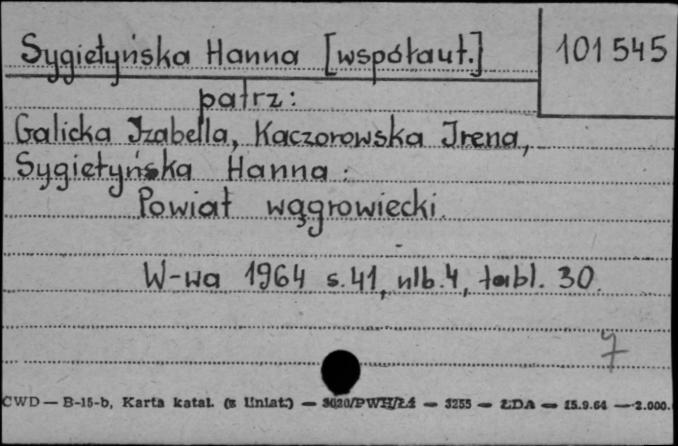 Sygietyńska Hanna [współaut.] 101545
patrz:
Galicka Izabella, Kaczorowska Irena,
Sygietyńska Hanna:
Powiat wągrowiecki.
W-wa 1964 s. 41, nlb. 4, tabl. 30.
7
CWD — B-15-b, Karta katal. (z liniat.) — 3020/PWH/Łź — 3255 — ŁDA — 15.9.64 — 2.000.